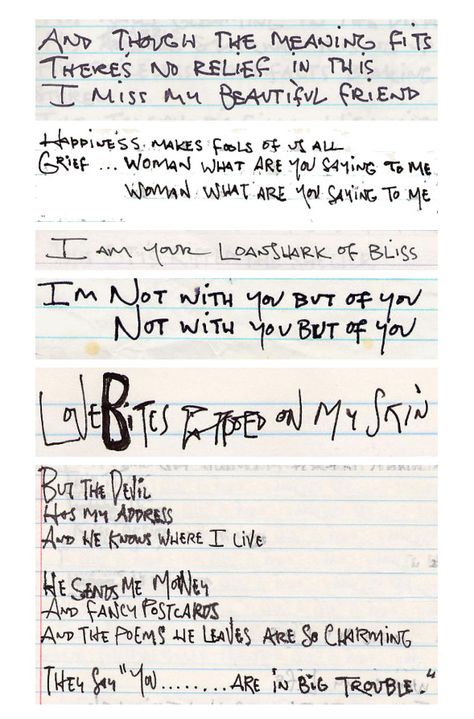 AND THOUGH THE MEANING FITS
THERES NO RELIEF IN THIS
I MISS MY BEAUTIFUL FRIEND
HAPPINESS MAKES FOOLS OF US ALL
GRIEF ... WOMAN WHAT ARE YOU SAYING TO ME
WOMAN WHAT ARE YOU SAYING TO ME
I AM YOUR LOANSHARK OF BLISS
I'M NOT WITH YOU BUT OF YOU
NOT WITH YOU BUT OF YOU
LOVE BITES ON MY SKIN
BUT THE DEVIL
HAS MY ADDRESS
AND HE KNOWS WHERE I LIVE
HE SENDS ME MONEY
AND FANCY POSTCARDS
AND THE POEMS HE LEAVES ARE SO CHARMING
THEY SAY "YOU........ARE IN BIG TROUBLE."